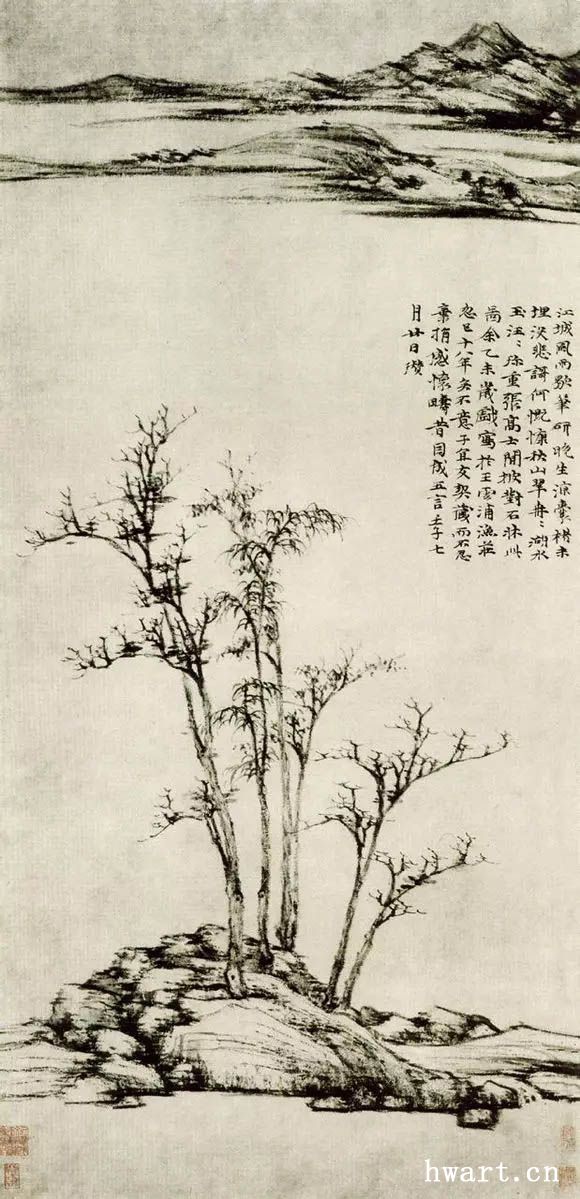 江城風雨歇筆研晚生涼囊楮未
埋没悲謌何慨慷秋山翠冉〻湖水
玉汪〻珍重張高士閒披對石牀此
圖余乙未歲戲寫於王雲浦漁莊
忽已十八年矣不意子宜友契藏而不忍
棄捐感懷疇昔因成五言壬子七
月廿日瓚
hwart.cn